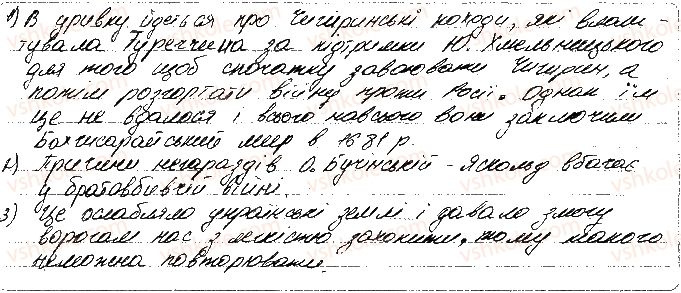 1) В уривку йдеться про Чигиринські походи, які влаш-
тувала Туреччина за підтримки Ю. Хмельницького
для того щоб спочатку завоювати Чигирин, а
потім розгортати війну проти Росії. Однак їм
це не вдалося і всього навсього вони заключили
Бахчисарайський мир в 1681 р.
2) Причини негараздів О. Бучінський - Яскольд вбачає
у братовбивчій війні.
3) Це ослабляло українські землі і давало змогу
ворогам нас з легкістю захопити, тому такого
неможна повторювати.